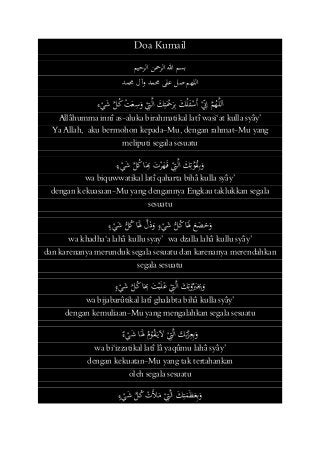 Doa Kumail
بسم الله الرحمن الرحيم
اللهم صل على محمد وآل محمد
اَللّٰهُمَّ اِنِّيْ اَسْأَلُكَ بِرَحْمَتِكَ الَّتِيْ وَسِعَتْ كُلَّ شَيْءٍ
Allâhumma innî as-aluka birahmatikal latî wasi'at kulla syây'
Ya Allah, aku bermohon kepada-Mu, dengan rahmat-Mu yang
meliputi segala sesuatu
وَبِقُوَّتِكَ الَّتِيْ قَهَرْتَ بِهَا كُلَّ شَيْءٍ
wa biquwwatikal latî qaharta bihâ kulla syây'
dengan kekuasaan-Mu yang dengannya Engkau taklukkan segala
sesuatu
وَخَضَعَ لَهَا كُلُّ شَيْءٍ، وَذَلَّ لَهَا كُلُّ شَيْءٍ
wa khadha'a lahâ kullu syay' wa dzalla lahâ kullu syây'
dan karenanya merunduk segala sesuatu dan karenanya merendahkan
segala sesuatu
وَبِجَبَرُوْتِكَ الَّتِيْ غَلَبْتَ بِهَا كُلَّ شَيْءٍ
wa bijabarûtikal latî ghalabta bihâ kulla syây'
dengan kemuliaan-Mu yang mengalahkan segala sesuatu
وَبِعِزَّتِكَ الَّتِيْ لاَ يَقُوْمُ لَهَا شَيْءٌ
wa bi'izzatikal latî lâ yaqûmu lahâ syây'
dengan kekuatan-Mu yang tak tertahankan
oleh segala sesuatu
وَبِعَظَمَتِكَ الَّتِيْ مَلَأَتْ كُلَّ شَيْءٍ